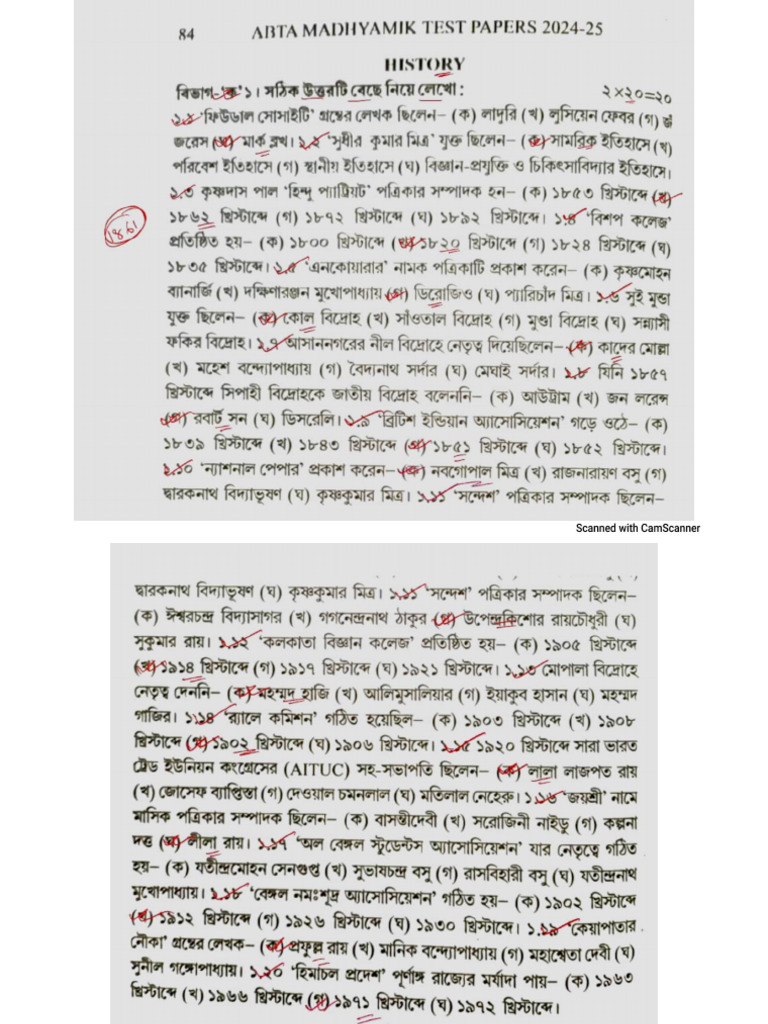 84 ABTA MADHYAMIK TEST PAPERS 2024-25
HISTORY
বিভাগ-'ক' ১। সঠিক উত্তরটি বেছে নিয়ে লেখো : ২×২০=২০
১.১ 'ফিউডাল সোসাইটি' গ্রন্থের লেখক ছিলেন– (ক) লাদুরি (খ) লুসিয়েন ফেবর (গ)
জরেস (ঘ) মার্ক ব্লখ। ১.২ 'সুধীর কুমার মিত্র' যুক্ত ছিলেন– (ক) সামরিক ইতিহাসে (খ)
পরিবেশ ইতিহাসে (গ) স্থানীয় ইতিহাসে (ঘ) বিজ্ঞান-প্রযুক্তি ও চিকিৎসাবিদ্যার ইতিহাসে।
১.৩ কৃষ্ণদাস পাল 'হিন্দু প্যাট্রিয়ট' পত্রিকার সম্পাদক হন– (ক) ১৮৫৩ খ্রিস্টাব্দে (খ)
1861 ১৮৬২ খ্রিস্টাব্দে (গ) ১৮৭২ খ্রিস্টাব্দে (ঘ) ১৮৯২ খ্রিস্টাব্দে। ১.৪ 'বিশপ কলেজ'
প্রতিষ্ঠিত হয়– (ক) ১৮০০ খ্রিস্টাব্দে (খ) ১৮২০ খ্রিস্টাব্দে (গ) ১৮২৪ খ্রিস্টাব্দে (ঘ)
১৮৩৫ খ্রিস্টাব্দে। ১.৫ 'এনকোয়ারার' নামক পত্রিকাটি প্রকাশ করেন– (ক) কৃষ্ণমোহন
ব্যানার্জি (খ) দক্ষিণারঞ্জন মুখোপাধ্যায় (গ) ডিরোজিও (ঘ) প্যারিচাঁদ মিত্র। ১.৬ সুই মুন্ডা
যুক্ত ছিলেন– (ক) কোল বিদ্রোহ (খ) সাঁওতাল বিদ্রোহ (গ) মুণ্ডা বিদ্রোহ (ঘ) সন্ন্যাসী
ফকির বিদ্রোহ। ১.৭ আসাননগরের নীল বিদ্রোহে নেতৃত্ব দিয়েছিলেন– (ক) কাদের মোল্লা
(খ) মহেশ বন্দ্যোপাধ্যায় (গ) বৈদ্যনাথ সর্দার (ঘ) মেঘাই সর্দার। ১.৮ যিনি ১৮৫৭
খ্রিস্টাব্দে সিপাহী বিদ্রোহকে জাতীয় বিদ্রোহ বলেননি– (ক) আউট্রাম (খ) জন লরেন্স
(গ) রবার্ট সন (ঘ) ডিসরেলি। ১.৯ 'ব্রিটিশ ইন্ডিয়ান অ্যাসোসিয়েশন' গড়ে ওঠে– (ক)
১৮৩৯ খ্রিস্টাব্দে (খ) ১৮৪৩ খ্রিস্টাব্দে (গ) ১৮৫১ খ্রিস্টাব্দে (ঘ) ১৮৫২ খ্রিস্টাব্দে।
১.১০ 'ন্যাশনাল পেপার' প্রকাশ করেন– (ক) নবগোপাল মিত্র (খ) রাজনারায়ণ বসু (গ)
দ্বারকনাথ বিদ্যাভূষণ (ঘ) কৃষ্ণকুমার মিত্র। ১.১১ 'সন্দেশ' পত্রিকার সম্পাদক ছিলেন–
Scanned with CamScanner
দ্বারকনাথ বিদ্যাভূষণ (ঘ) কৃষ্ণকুমার মিত্র। ১.১১ 'সন্দেশ' পত্রিকার সম্পাদক ছিলেন–
(ক) ঈশ্বরচন্দ্র বিদ্যাসাগর (খ) গগনেন্দ্রনাথ ঠাকুর (গ) উপেন্দ্রকিশোর রায়চৌধুরী (ঘ)
সুকুমার রায়। ১.১২ 'কলকাতা বিজ্ঞান কলেজ' প্রতিষ্ঠিত হয়– (ক) ১৯০৫ খ্রিস্টাব্দে
(খ) ১৯১৪ খ্রিস্টাব্দে (গ) ১৯১৭ খ্রিস্টাব্দে (ঘ) ১৯২১ খ্রিস্টাব্দে। ১.১৩ মোপালা বিদ্রোহে
নেতৃত্ব দেননি– (ক) মহম্মদ হাজি (খ) আলিমুসালিয়ার (গ) ইয়াকুব হাসান (ঘ) মহম্মদ
গাজির। ১.১৪ 'র‍্যালে কমিশন' গঠিত হয়েছিল– (ক) ১৯০৩ খ্রিস্টাব্দে (খ) ১৯০৮
খ্রিস্টাব্দে (গ) ১৯০২ খ্রিস্টাব্দে (ঘ) ১৯০৬ খ্রিস্টাব্দে। ১.১৫ ১৯২০ খ্রিস্টাব্দে সারা ভারত
ট্রেড ইউনিয়ন কংগ্রেসের (AITUC) সহ-সভাপতি ছিলেন– (ক) লালা লাজপত রায়
(খ) জোসেফ ব্যাপ্তিস্তা (গ) দেওয়াল চমনলাল (ঘ) মতিলাল নেহেরু। ১.১৬ 'জয়শ্রী' নামে
মাসিক পত্রিকার সম্পাদক ছিলেন– (ক) বাসন্তীদেবী (খ) সরোজিনী নাইডু (গ) কল্পনা
দত্ত (ঘ) লীলা রায়। ১.১৭ 'অল বেঙ্গল স্টুডেন্টস অ্যাসোসিয়েশন' যার নেতৃত্বে গঠিত
হয়– (ক) যতীন্দ্রমোহন সেনগুপ্ত (খ) সুভাষচন্দ্র বসু (গ) রাসবিহারী বসু (ঘ) যতীন্দ্রনাথ
মুখোপাধ্যায়। ১.১৮ 'বেঙ্গল নমঃশূদ্র অ্যাসোসিয়েশন' গঠিত হয়– (ক) ১৯০২ খ্রিস্টাব্দে
(খ) ১৯১২ খ্রিস্টাব্দে (গ) ১৯২৬ খ্রিস্টাব্দে (ঘ) ১৯৩০ খ্রিস্টাব্দে। ১.১৯ 'কেয়াপাতার
নৌকা' গ্রন্থের লেখক– (ক) প্রফুল্ল রায় (খ) মানিক বন্দ্যোপাধ্যায় (গ) মহাশ্বেতা দেবী (ঘ)
সুনীল গঙ্গোপাধ্যায়। ১.২০ 'হিমাচল প্রদেশ' পূর্ণাঙ্গ রাজ্যের মর্যাদা পায়– (ক) ১৯৬৩
খ্রিস্টাব্দে (খ) ১৯৬৬ খ্রিস্টাব্দে (গ) ১৯৭১ খ্রিস্টাব্দে (ঘ) ১৯৭২ খ্রিস্টাব্দে।